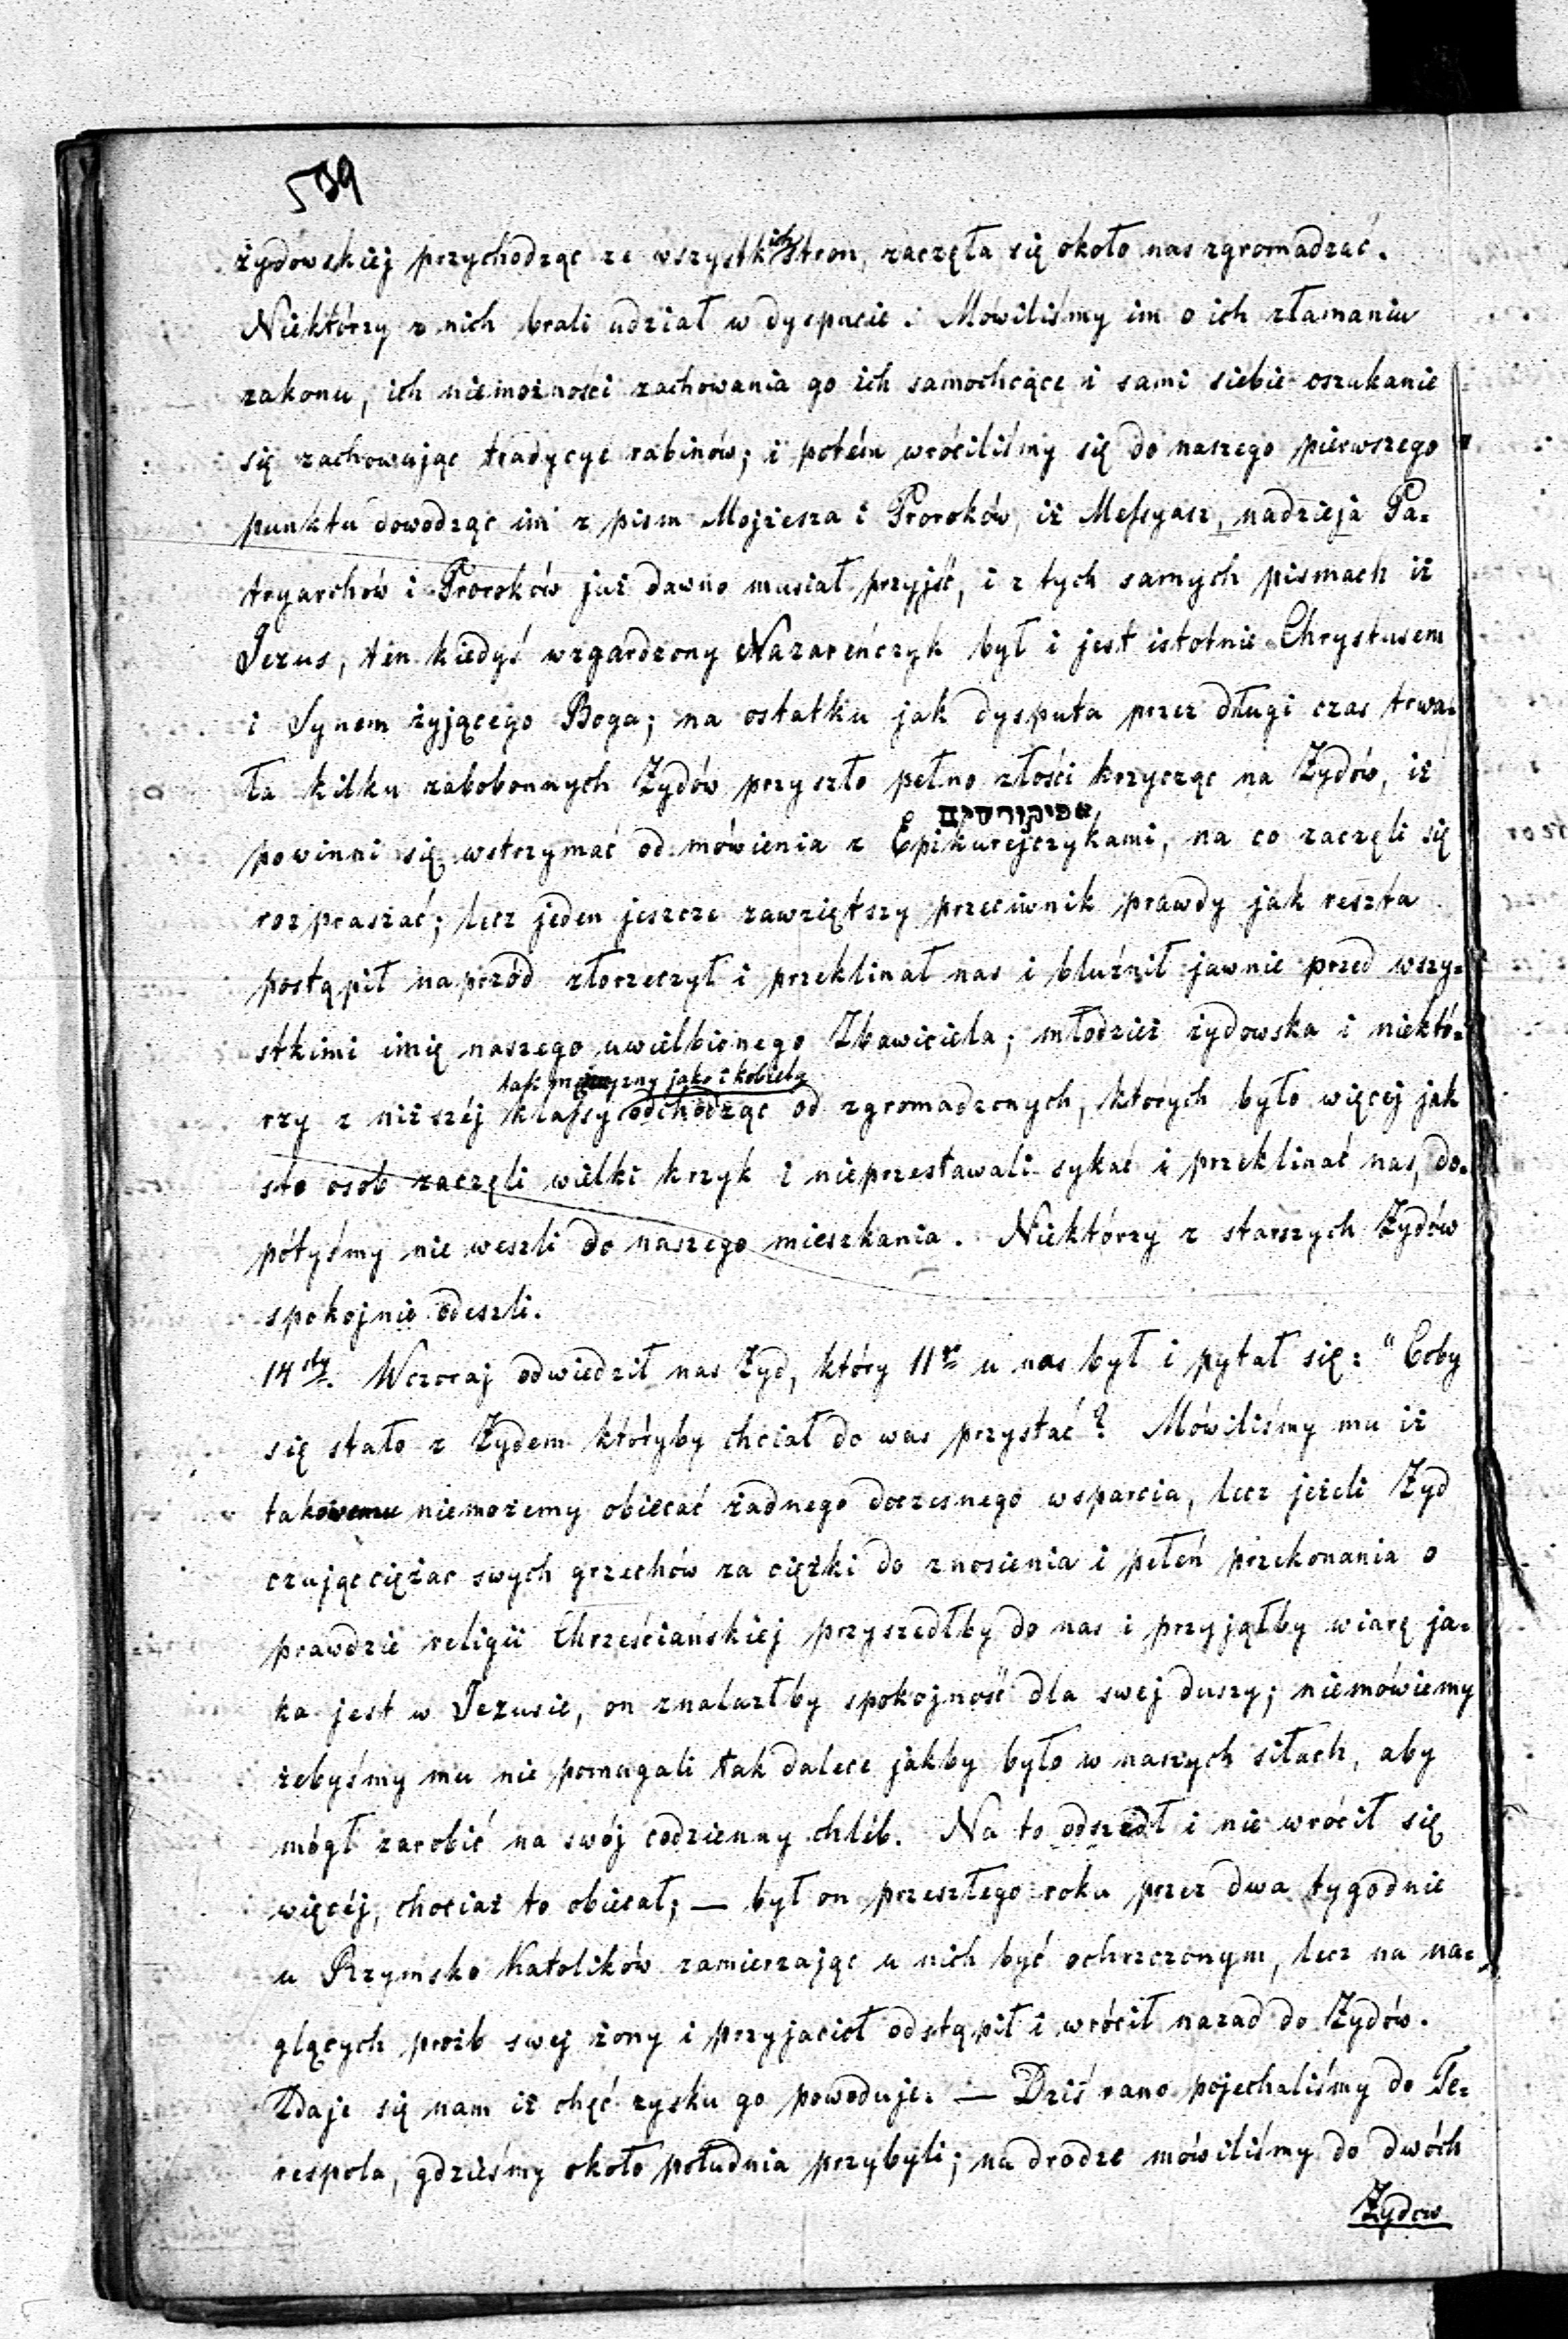 539
żydowskiej przychodząc ze wszystkich stron, zaczęła się około nas zgromadzać.
Niektórzy z nich brali udział w dyspucie. Mówiliśmy im o ich złamaniu
zakonu, ich niemożności zachowania go ich samochcące i sami siebie oszukanie
się zachowując tradycye rabinów; i potém wróciliśmy się do naszego pierwszego
punktu dowodząc im z pism Mojżesza i Proroków, iż Messyasz, nadzieja Pa-
tryarchów i Proroków już dawno musiał przyjść, i z tych samych pismach iż
Jezus, ten kiedyś wzgardzony Nazareńczyk był i jest istotnie Chrystusem
i Synem żyjącego Boga; na ostatku jak dysputa przez długi czas trwa-
ła kilku zabobonnych Żydów przyszło pełno złości krzycząc na Żydów, iż
אפיקורסים
powinni się wstrzymać od mówienia z Epikurejczykami, na co zaczęli się
rozpraszać; lecz jeden jeszcze zawziętszy przeciwnik prawdy jak reszta
postąpił naprzód złorzeczył i przeklinał nas i bluźnił jawnie przed wszy-
stkimi imię naszego uwielbionego Zbawiciela; młodzież żydowska i niektó-
tak mężczyzny jako i kobiety
rzy z niższéj klassy odchodząc od zgromadzonych, których było więcej jak
sto osob zaczęli wielki krzyk i nieprzestawali sykać i przeklinać nas, do-
pótyśmy nie weszli do naszego mieszkania. Niektórzy z starszych Żydów
spokojnie odeszli.
14sty. Wczoraj odwiedził nas Żyd, który 11go u nas był i pytał się: "Coby
się stało z Żydem któryby chciał do was przystać? Mówiliśmy mu iż
takowemu niemożemy obiecać żadnego doczesnego wsparcia, lecz jeżeli Żyd
czując ciężar swych grzechów za ciężki do znosienia i pełeń przekonania o
prawdzie religii Chrześciańskiej przyszedłby do nas i przyjąłby wiarę ja-
ka jest w Jezusie, on znalazłby spokojność dla swej duszy; niemówiemy
żebyśmy mu nie pomagali tak dalece jakby było w naszych siłach, aby
mógł zarobić na swój codzienny chléb. Na to odszedł i nie wrócił się
więcéj, chociaż to obiecał; — był on przeszłego roku przez dwa tygodnie
u Rzymsko Katolików zamierzając u nich być ochrzczonym, lecz na na-
glących prożb swej żony i przyjacioł odstąpił i wrócił nazad do Żydów.
Zdaje się nam iż chęć zysku go powoduje. — Dziś rano pojechaliśmy do Te-
respola, gdzieśmy około południa przybyli; na drodze mówiliśmy do dwóch
Żydow